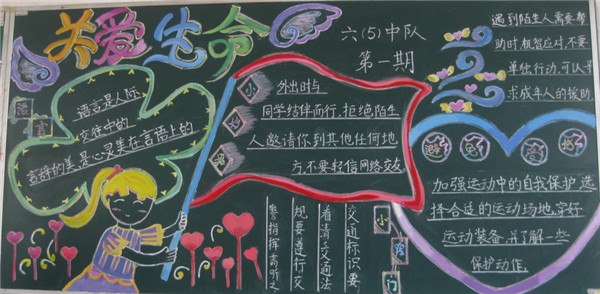 关爱生命
六(5)中队
第一期
遇到陌生人需要帮
助时,机智应对,不要
单独行动,可以寻
求成年人的援助
语言
语言是人际
交往中的
言辞的美,是心灵美在言语上的
小
外出时与
同学结伴而行,拒绝陌生
人邀请你到其他任何地
方,不要轻信网络交友
加强运动中的自我保护,选
择合适的运动场地,穿好
运动装备,并了解一些
保护动作.
交通标识要
看清,交通法
规要遵行,交
警指挥需听之
小
窍
门